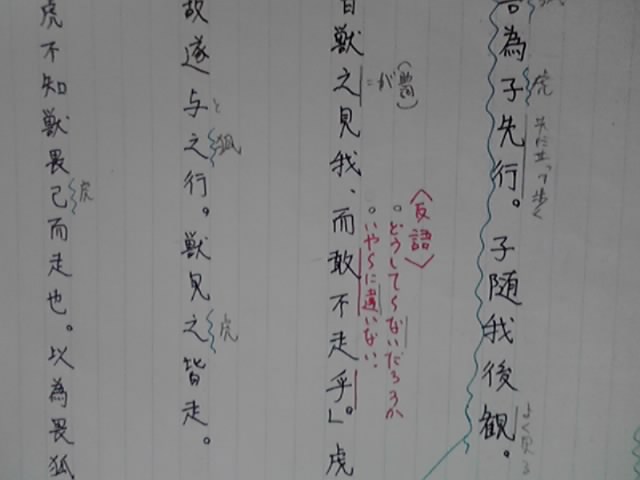 為子先行。子随我後観。
虎
先に立って歩く
よく見る
獣之見我、而敢不走乎。」虎
＝が
〈反語〉
。どうして〜ないだろうか
。いや〜に違いない.
故遂与之行。獣見之皆走。
と
狐
虎
虎不知獣畏己而走也。以為畏狐
虎